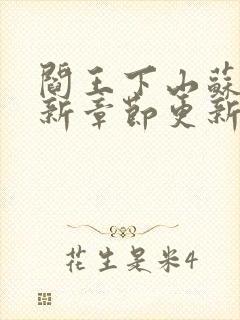 閻王下山蘇
新章節更新
花生是米4